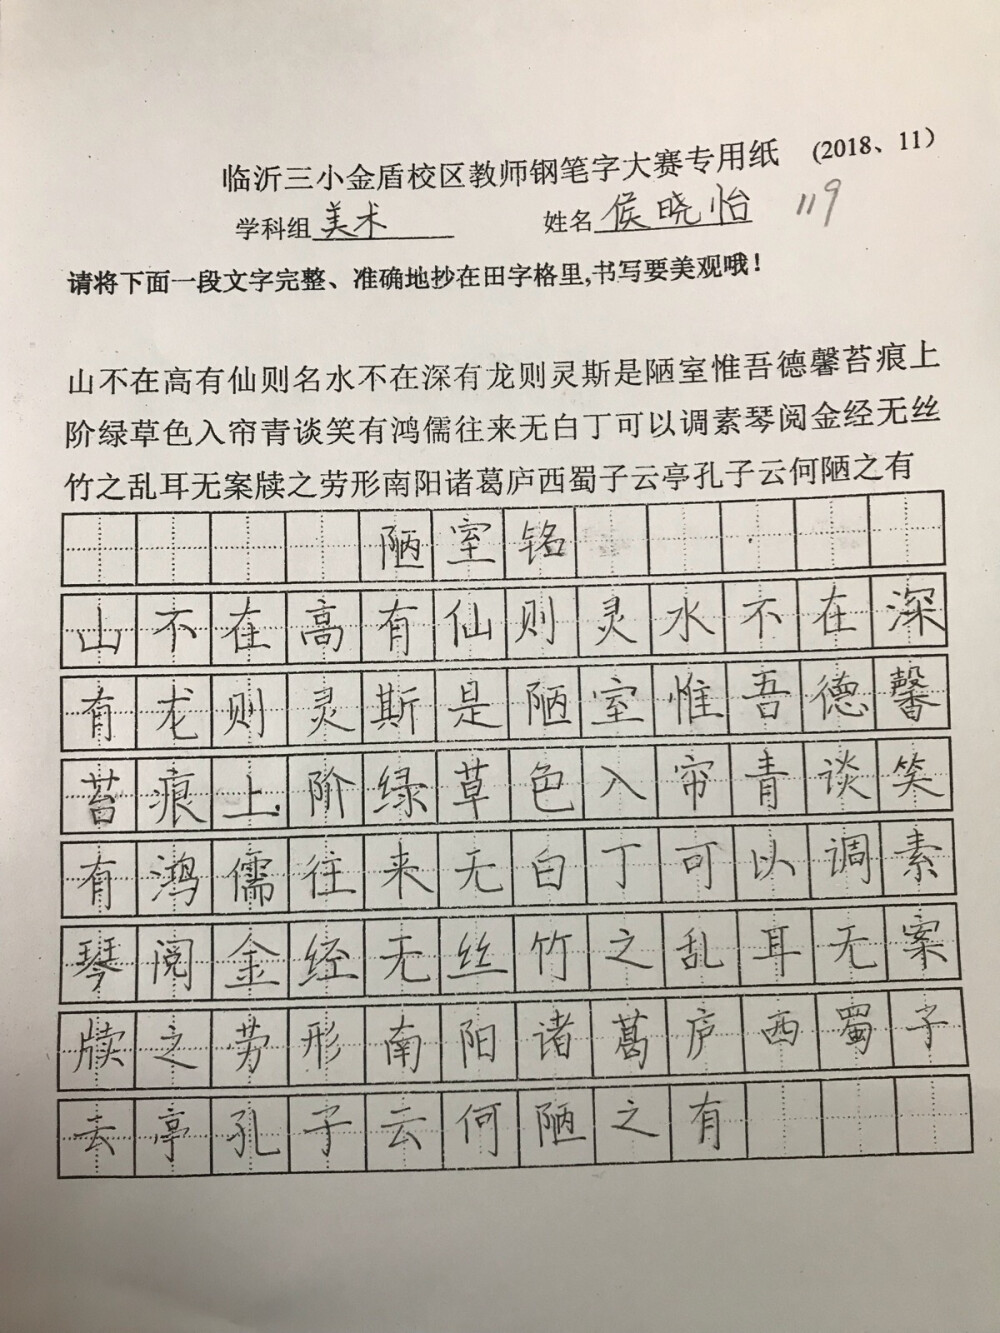 临沂三小金盾校区教师钢笔字大赛专用纸 (2018、11)
学科组美术 姓名侯晓怡 119
请将下面一段文字完整、准确地抄在田字格里,书写要美观哦!
山不在高有仙则名水不在深有龙则灵斯是陋室惟吾德馨苔痕上
阶绿草色入帘青谈笑有鸿儒往来无白丁可以调素琴阅金经无丝
竹之乱耳无案牍之劳形南阳诸葛庐西蜀子云亭孔子云何陋之有
陋室铭
山不在高有仙则灵水不在深
有龙则灵斯是陋室惟吾德馨
苔痕上阶绿草色入帘青谈笑
有鸿儒往来无白丁可以调素
琴阅金经无丝竹之乱耳无案
牍之劳形南阳诸葛庐西蜀子
去亭孔子云何陋之有